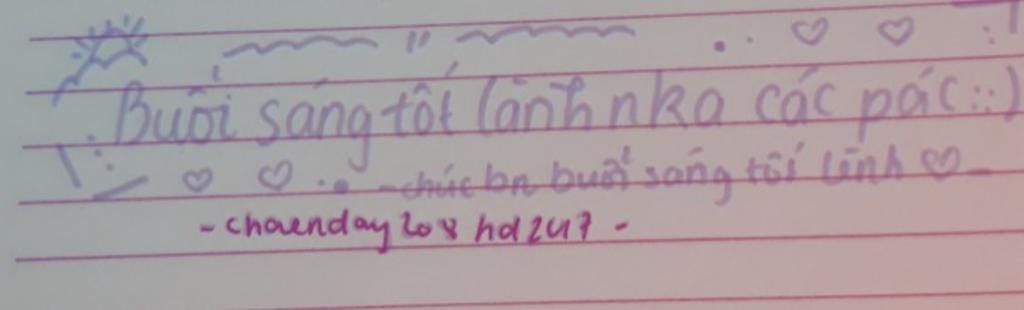 Buổi sáng tốt lành nka các pác::)
-chúc bn buổi sáng tốt lành ♡-
-chaenday208hd247-